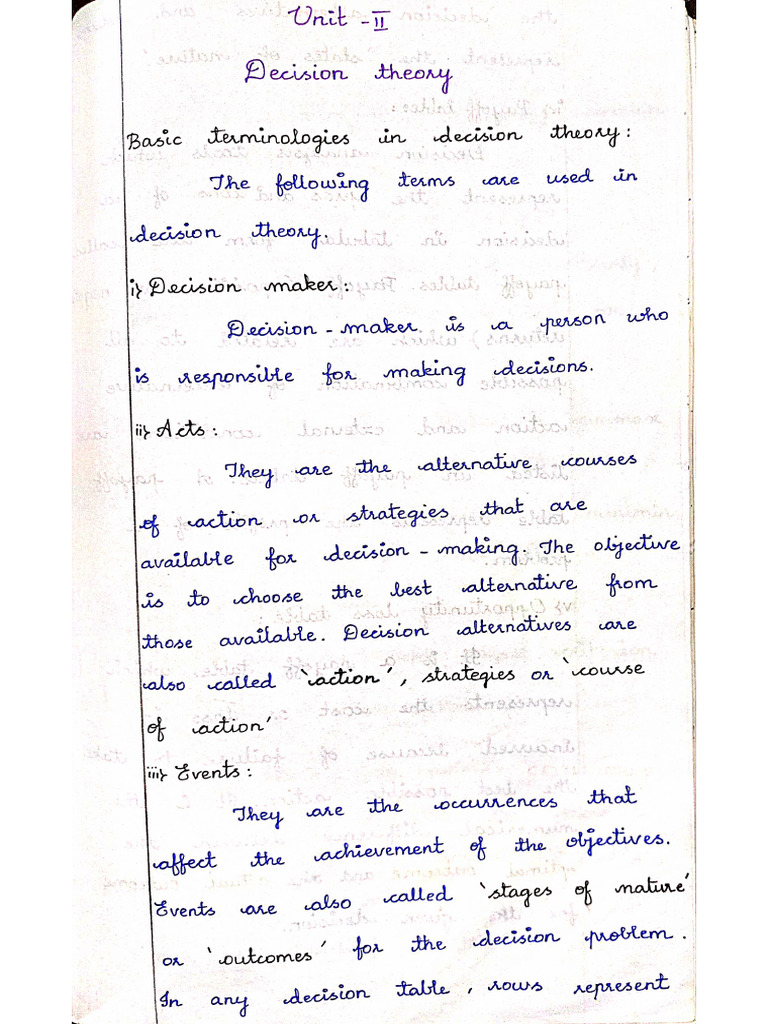 Unit - II
Decision theory
Basic terminologies in decision theory:
The following terms are used in
decision theory.
i) Decision maker:
Decision-maker is a person who
is responsible for making decisions.
ii) Acts:
They are the alternative courses
of action or strategies that are
available for decision-making. The objective
is to choose the best alternative from
those available. Decision alternatives are
also called 'action', strategies or 'course
of action'
iii) Events:
They are the occurrences that
affect the achievement of the objectives.
Events are also called 'stages of nature'
or 'outcomes' for the decision problem.
In any decision table, rows represent